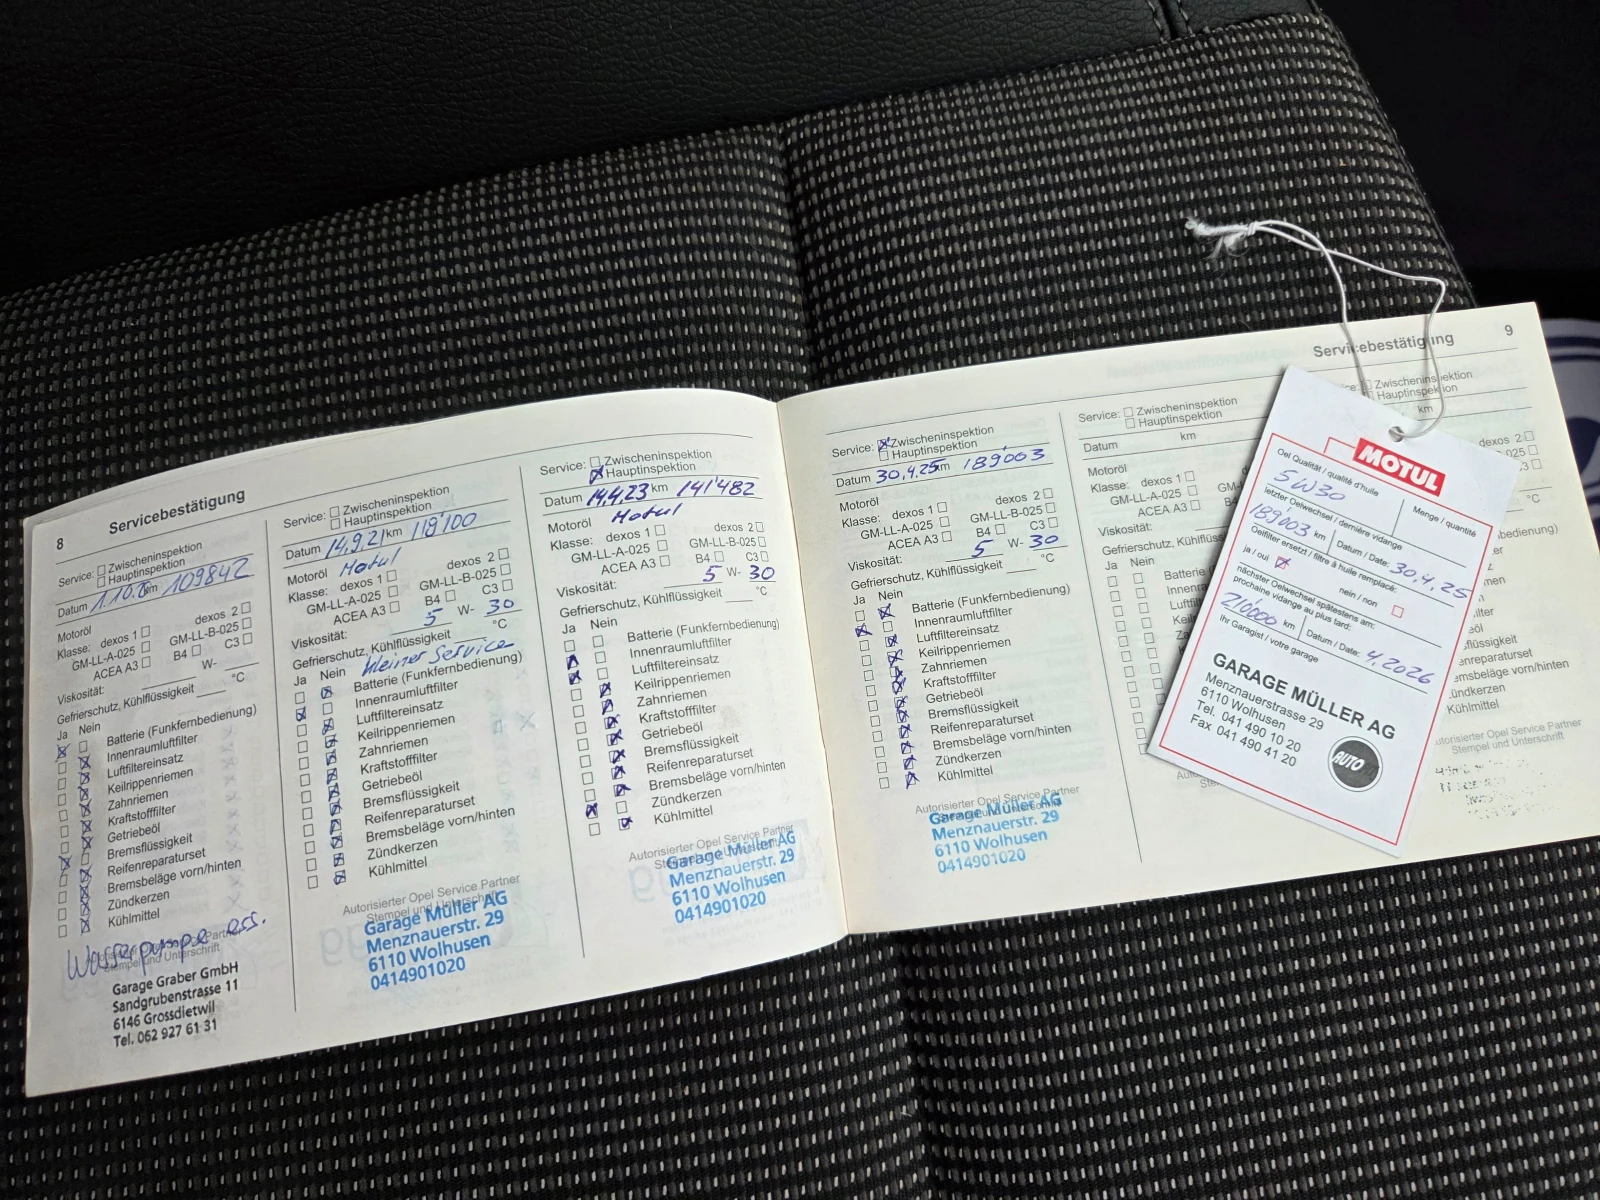 8
Servicebestätigung
Service: Zwischeninspektion
Hauptinspektion
Datum 1.10.20 km 109842
Motoröl
Klasse: dexos 1 dexos 2
GM-LL-A-025 GM-LL-B-025
ACEA A3 B4 C3
Viskosität: W-
Gefrierschutz, Kühlflüssigkeit °C
Ja Nein
Batterie (Funkfernbedienung)
Innenraumluftfilter
Luftfiltereinsatz
Keilrippenriemen
Zahnriemen
Kraftstofffilter
Getriebeöl
Bremsflüssigkeit
Reifenreparaturset
Bremsbeläge vorn/hinten
Zündkerzen
Kühlmittel
Wasserpumpe ers.
Stempel und Unterschrift
Garage Graber GmbH
Sandgrubenstrasse 11
6146 Grossdietwil
Tel. 062 927 61 31
Service: Zwischeninspektion
Hauptinspektion
Datum 14.9.21 km 118'100
Motoröl Motul
Klasse: dexos 1 dexos 2
GM-LL-A-025 GM-LL-B-025
ACEA A3 B4 C3
Viskosität: 5 W- 30
Gefrierschutz, Kühlflüssigkeit °C
Ja Nein kleiner Service
Batterie (Funkfernbedienung)
Innenraumluftfilter
Luftfiltereinsatz
Keilrippenriemen
Zahnriemen
Kraftstofffilter
Getriebeöl
Bremsflüssigkeit
Reifenreparaturset
Bremsbeläge vorn/hinten
Zündkerzen
Kühlmittel
Autorisierter Opel Service Partner
Stempel und Unterschrift
Garage Müller AG
Menznauerstr. 29
6110 Wolhusen
0414901020
Service: Zwischeninspektion
Hauptinspektion
Datum 14.4.23 km 141'482
Motoröl Motul
Klasse: dexos 1 dexos 2
GM-LL-A-025 GM-LL-B-025
ACEA A3 B4 C3
Viskosität: 5 W- 30
Gefrierschutz, Kühlflüssigkeit °C
Ja Nein
Batterie (Funkfernbedienung)
Innenraumluftfilter
Luftfiltereinsatz
Keilrippenriemen
Zahnriemen
Kraftstofffilter
Getriebeöl
Bremsflüssigkeit
Reifenreparaturset
Bremsbeläge vorn/hinten
Zündkerzen
Kühlmittel
Autorisierter Opel Service Partner
Garage Müller AG
Menznauerstr. 29
6110 Wolhusen
0414901020
Servicebestätigung
9
Service: Zwischeninspektion
Hauptinspektion
Datum 30.4.25 km 189'003
Motoröl
Klasse: dexos 1 dexos 2
GM-LL-A-025 GM-LL-B-025
ACEA A3 B4 C3
Viskosität: 5 W- 30
Gefrierschutz, Kühlflüssigkeit °C
Ja Nein
Batterie (Funkfernbedienung)
Innenraumluftfilter
Luftfiltereinsatz
Keilrippenriemen
Zahnriemen
Kraftstofffilter
Getriebeöl
Bremsflüssigkeit
Reifenreparaturset
Bremsbeläge vorn/hinten
Zündkerzen
Kühlmittel
Autorisierter Opel Service Partner
Garage Müller AG
Menznauerstr. 29
6110 Wolhusen
0414901020
Service: Zwischeninspektion
Hauptinspektion
Datum km
Motoröl
Klasse: dexos 1
GM-LL-A-025
ACEA A3
Viskosität:
Ja Nein
Zwischeninspektion
Hauptinspektion
km
dexos 2
°C
Kühlmittel
Autorisierter Opel Service Partner
Stempel und Unterschrift
MOTUL
Oel Qualität / qualité d'huile
5W30
Menge / quantité
letzter Oelwechsel / dernière vidange
189'003 km Datum / Date: 30.4.25
Oelfilter ersetzt / filtre à huile remplacé:
ja / oui nein / non
nächster Oelwechsel spätestens am:
prochaine vidange au plus tard:
210000 km Datum / Date: 4.2026
Ihr Garagist / votre garage
GARAGE MÜLLER AG
Menznauerstrasse 29
6110 Wolhusen
Tel. 041 490 10 20
Fax 041 490 41 20
AUTO